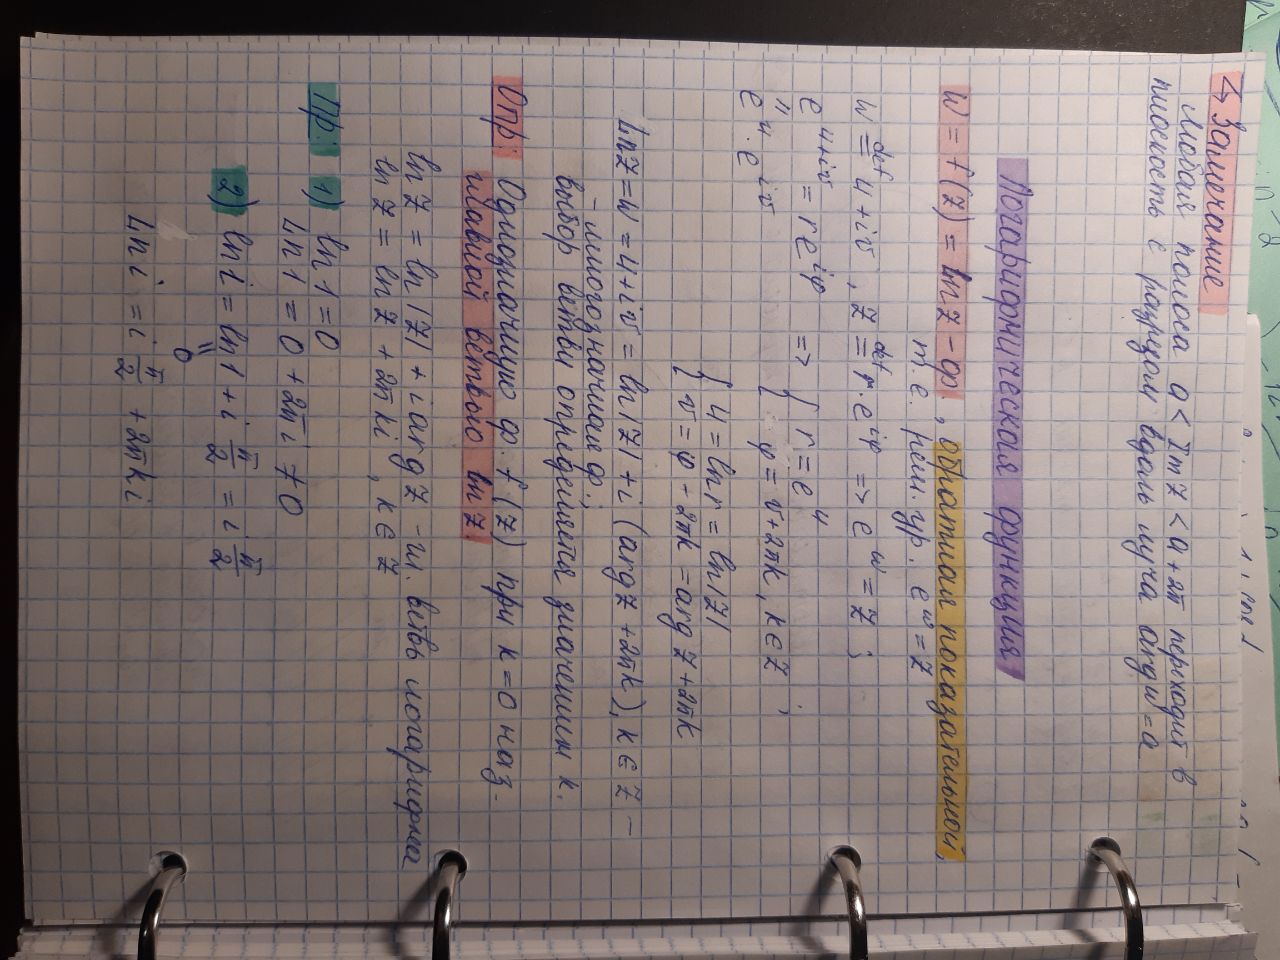 ↳ Замечание
Любая полоса a < Im z < a + 2π переходит в
плоскость с разрезом вдоль луча arg w = a
Логарифмическая функция
w = f(z) = ln z - ф., обратная показательной,
т.е. реш. ур. e^w = z
w =^def u + iv, z =^def r·e^iφ => e^w = z;
e^{u+iv} = re^{iφ} => { r = e^u
" φ = v + 2πk, k ∈ Z;
e^u · e^{iv}
{ u = ln r = ln|z|
v = φ + 2πk = arg z + 2πk
Ln z = w = u + iv = ln|z| + i (arg z + 2πk), k ∈ Z -
- многозначная ф.;
выбор ветви определяется значением k.
Опр: Однозначную ф. f(z) при k = 0 наз.
главной ветвью ln z
ln z = ln|z| + i arg z - гл. ветвь логарифма
Ln z = ln z + 2πki, k ∈ Z
Пр: 1) ln 1 = 0
Ln 1 = 0 + 2πi ≠ 0
2) ln i = ln 1 + i π/2 = i π/2
"
0
Ln i = i π/2 + 2πki